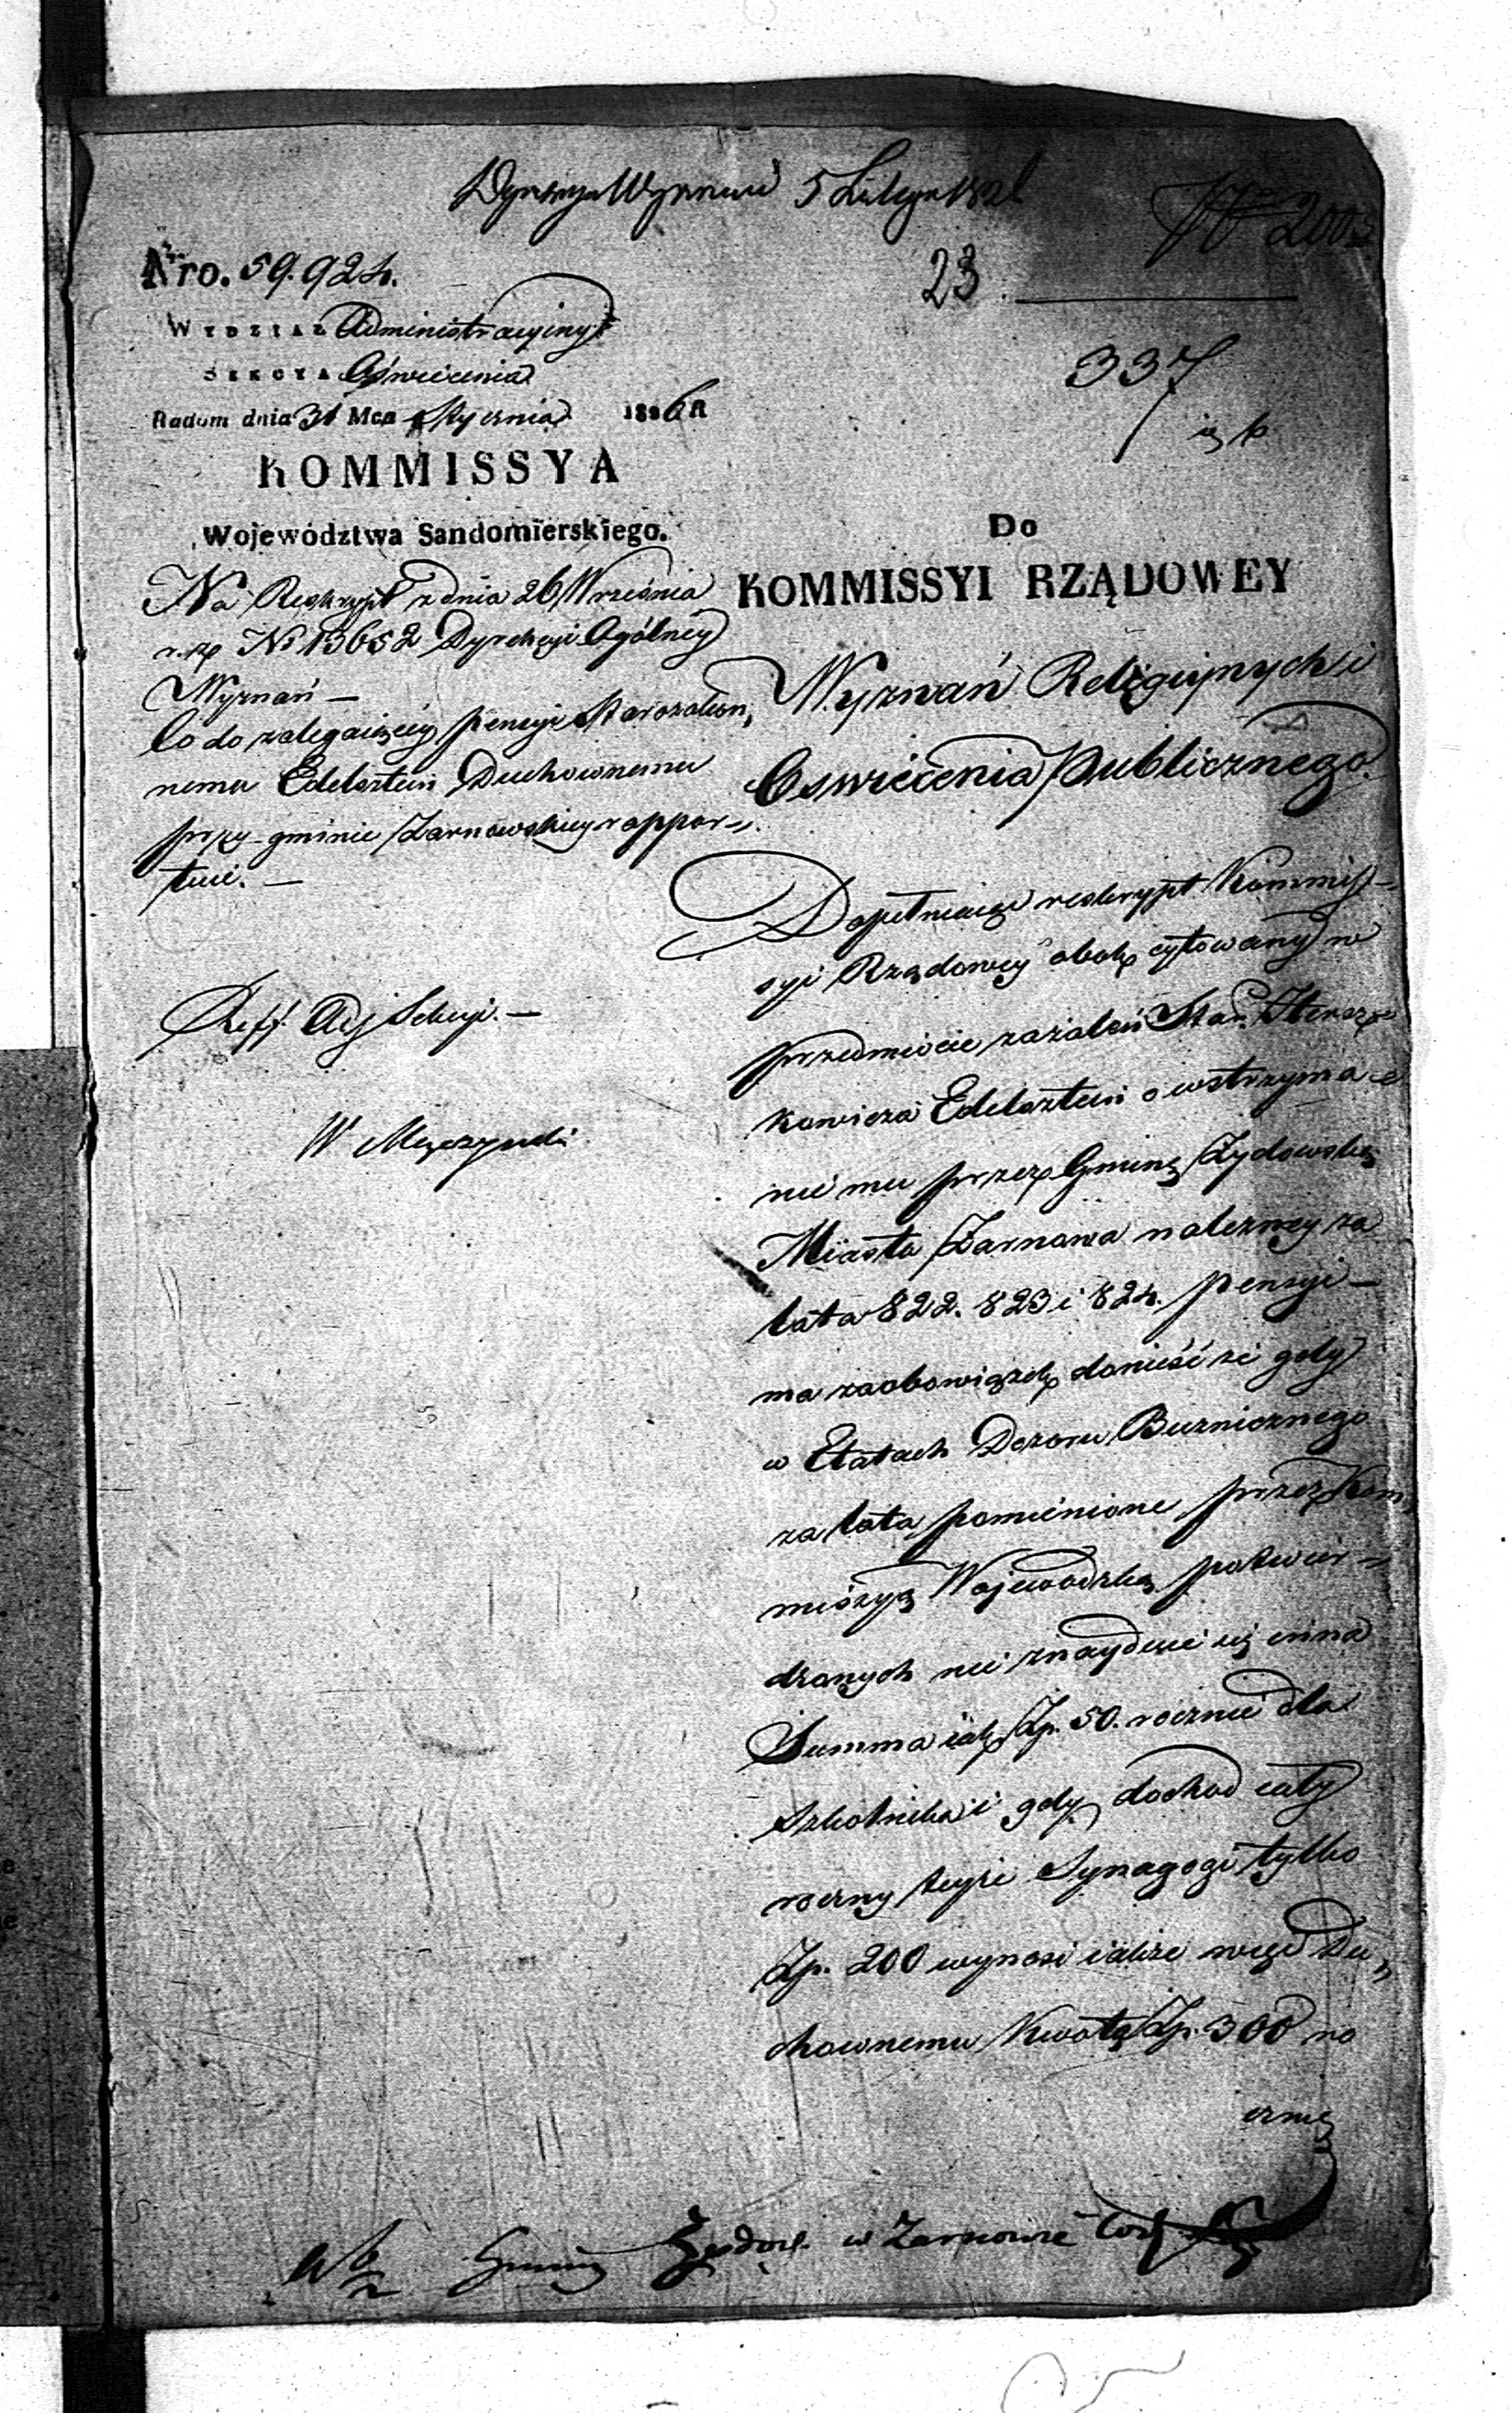 5 Lutego 1826
200
Nro. 59.924.
23
WYDZIAŁ Administracyiny
SEKCYA Oświecenia
337
Radom dnia 31 Mca Stycznia 1826 R
KOMMISSYA
Województwa Sandomierskiego.
Na Reskrypt z dnia 26 Września
r. z. No 13652 Dyrekcyi Ogólney
Wyznań —
Co do zalegaiącey pensyi Starozakon„
nemu Edelsztein Duchownemu
przy gminie Żarnowskiey rappor„
tuie. —
Reff. Adj Sekcyi. —
Do
KOMMISSYI RZĄDOWEY
Wyznań Religijnych i
Oswiecenia Publicznego.
Dopełniaiąc reskrypt Kommis-
syi Rządowey obok cytowany w
przedmiocie zażaleń Star. Herszko
kowicza Edelsztein o wstrzyma-
nie mu przez Gminę Żydowską
Miasta Żarnowa należney za
lata 822. 823 i 824. pensyi —
ma zaobowiązek donieść że gdy
w Etatach Dozoru Buzniczego
za lata pomienione przez Kom„
missyą Wojewodzką potwier„
dzonych nie znayduie się inna
Summa iak Zp. 50. rocznie dla
Szkolnika i gdy dochod cały
roczny teyże Synagogi tylko
Zp. 200 wynosi iakże więc Du„
chownemu Kwotę Zp. 300 ro
cznie
Gminy Żydow. w Żarnowie